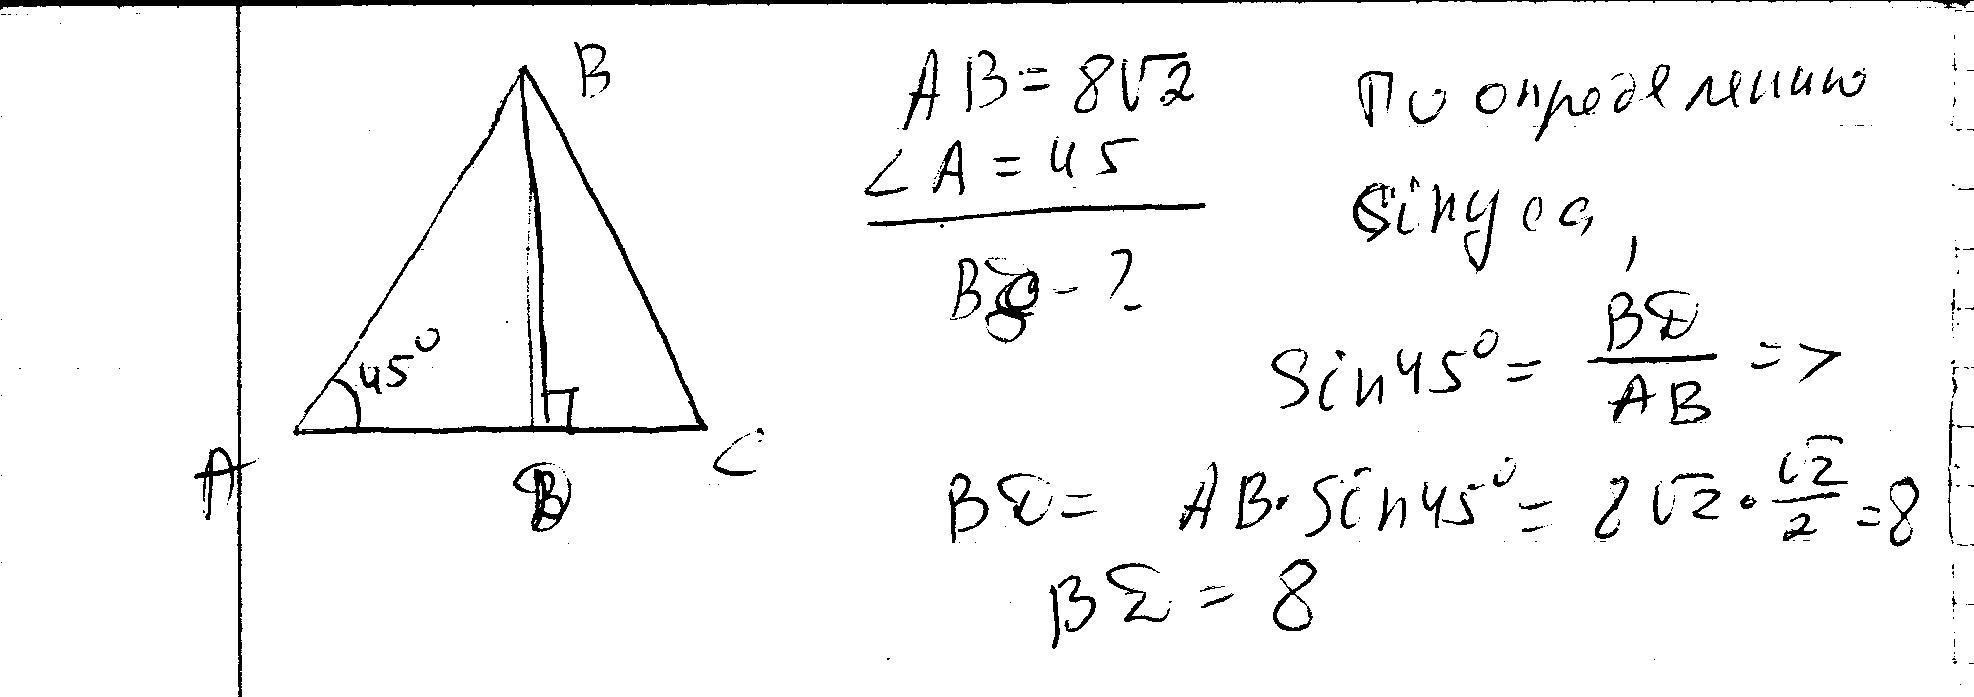 B
45°
A
D
C
AB = 8√2
∠A = 45
BD - ?
По определению
sinуса,
Sin45° = BD/AB =>
BD = AB · Sin45° = 8√2 · √2/2 = 8
BD = 8